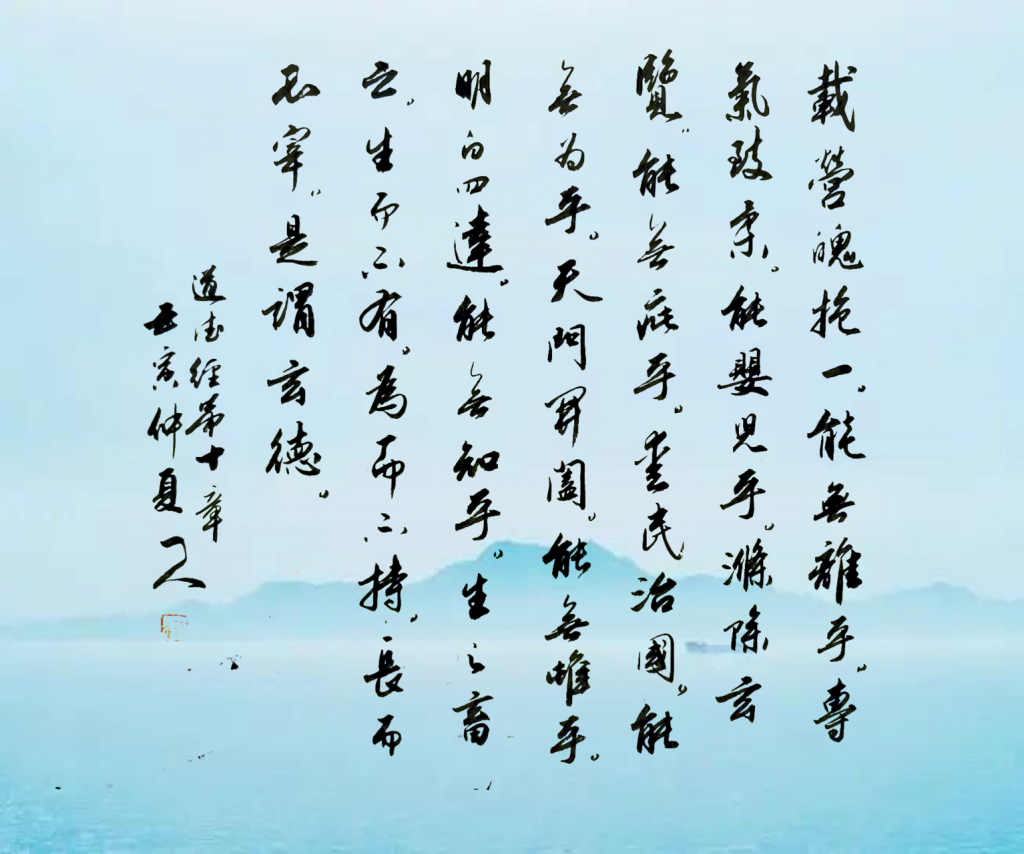 載營魄抱一。能無離乎。專
氣致柔。能嬰兒乎。滌除玄
覽。能無疵乎。愛民治國。能
無為乎。天門開闔。能無雌乎。
明白四達。能無知乎。生之畜
之。生而不有。為而不恃。長而
不宰。是謂玄德。
道德經第十章
壬寅仲夏